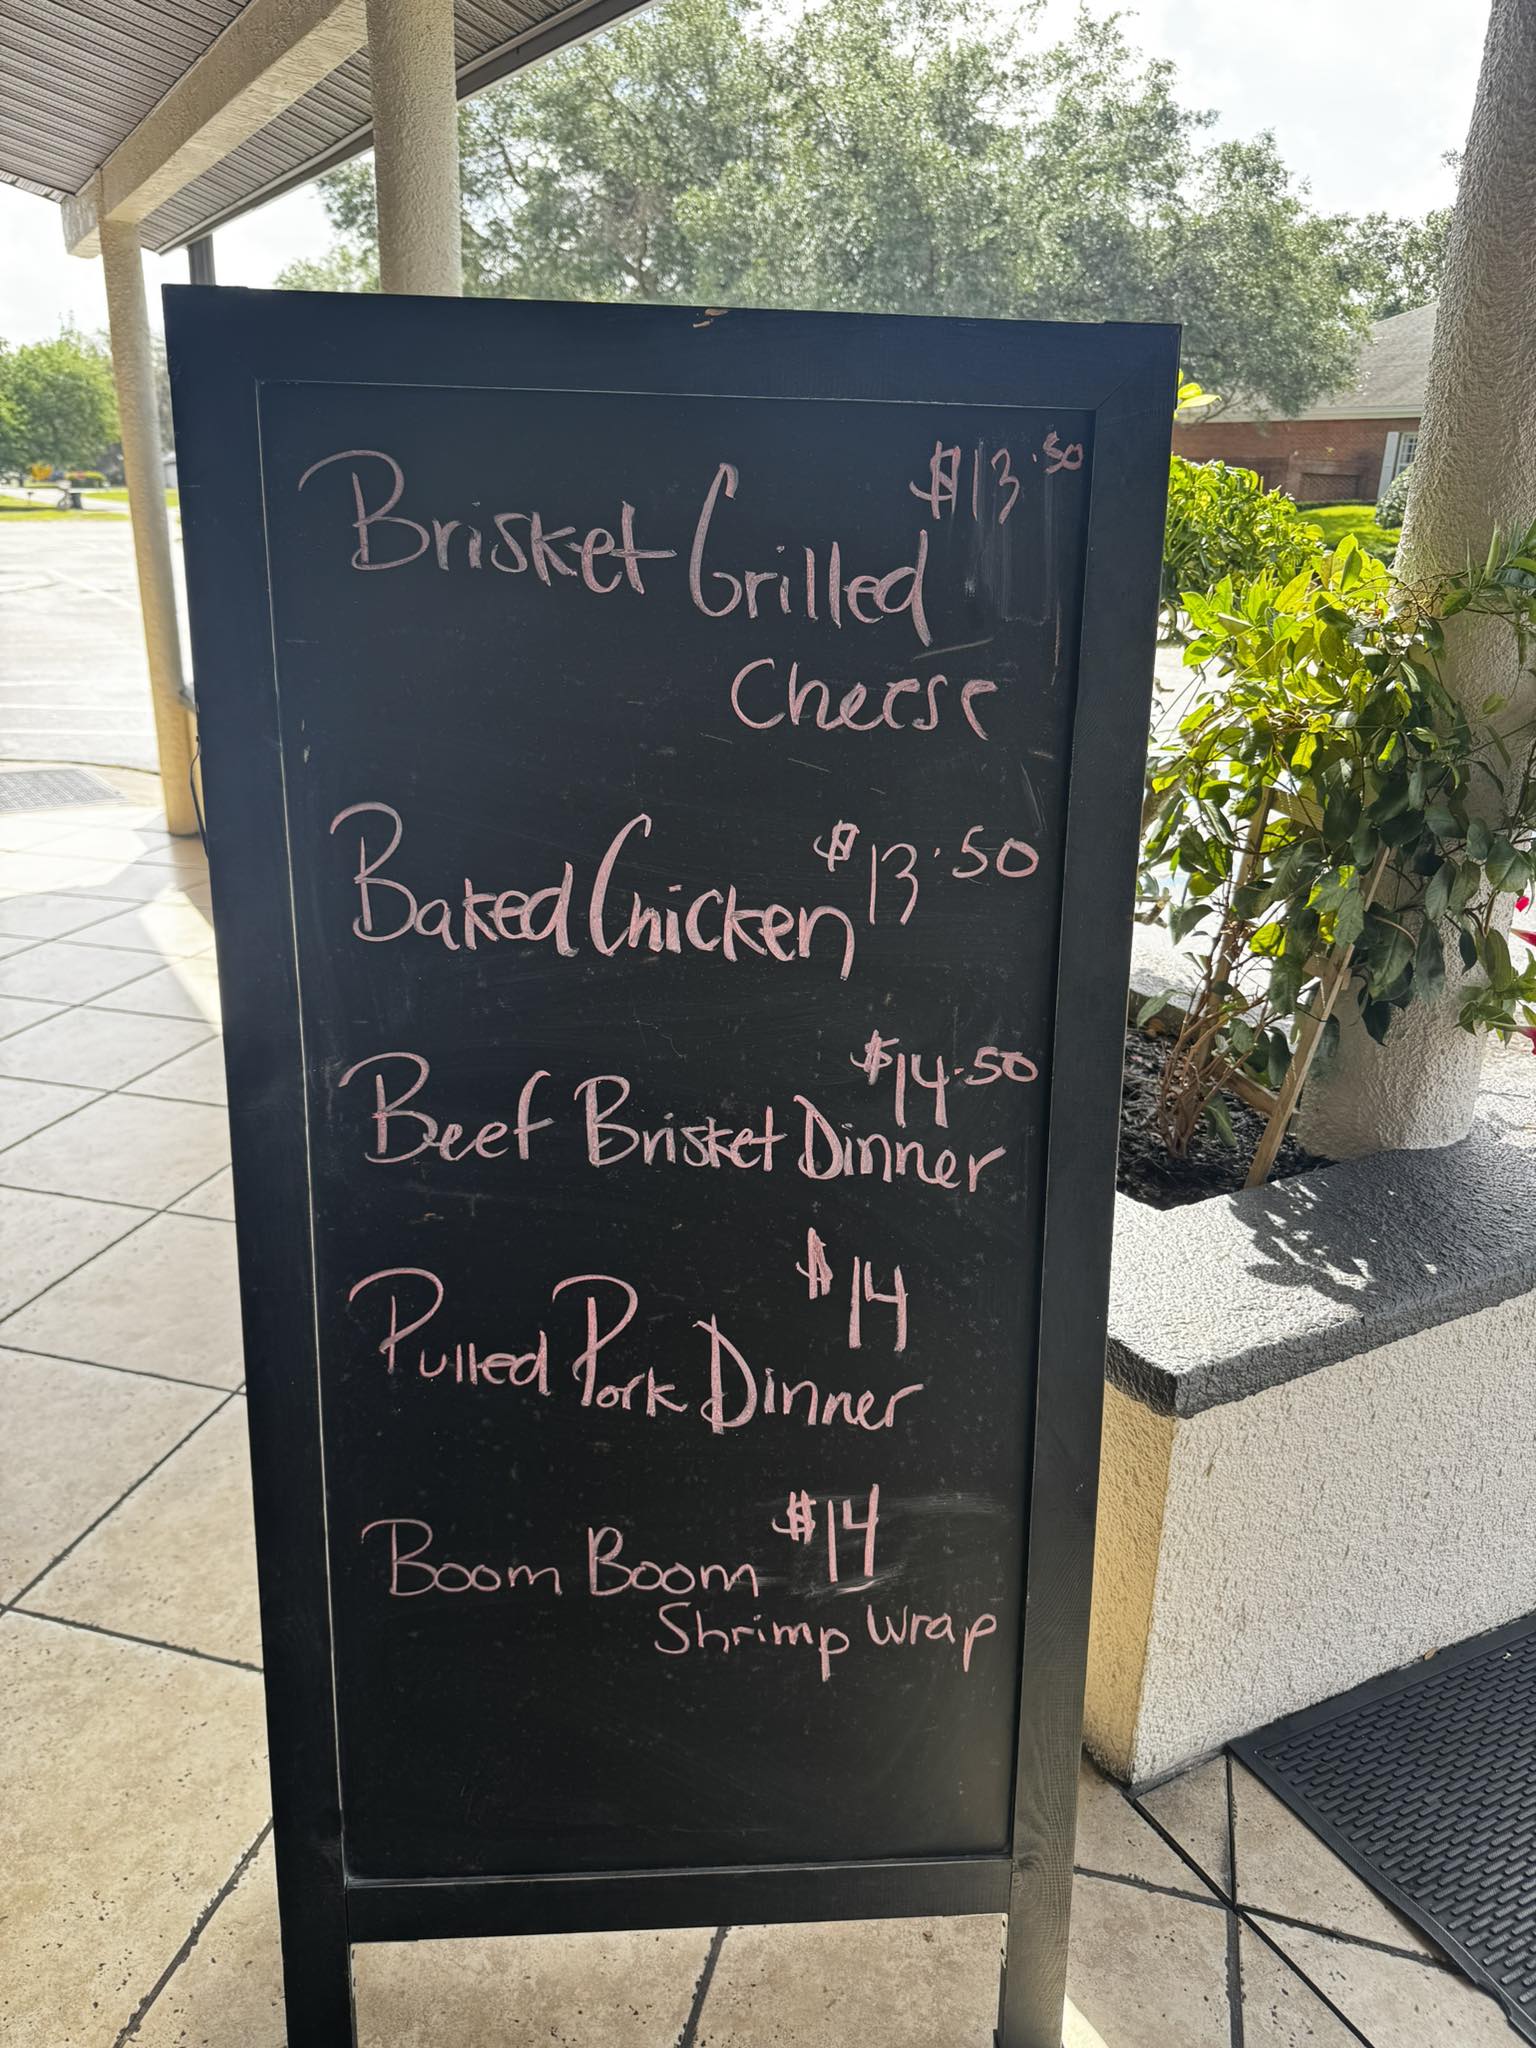 $13.50
Brisket Grilled
Cheese
$13.50
Baked Chicken
$14.50
Beef Brisket Dinner
$14
Pulled Pork Dinner
$14
Boom Boom
Shrimp Wrap